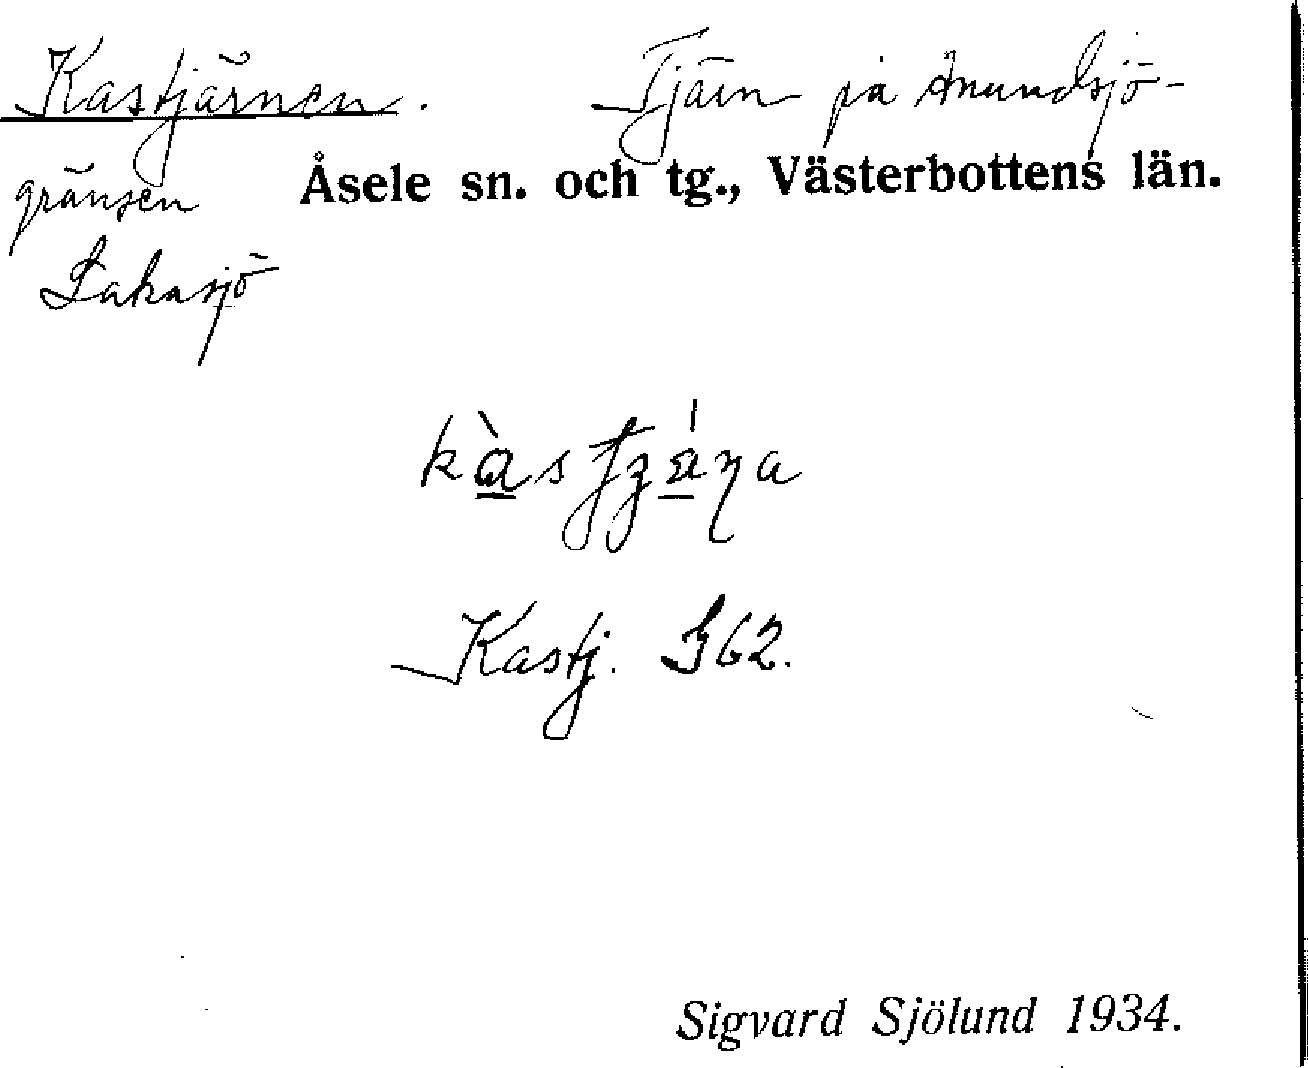 Kastjärnen. Tjärn på Anundsjö-
gränsen Åsele sn. och tg., Västerbottens län.
Lakasjö
Kastj. J62.
Sigvard Sjölund 1934.